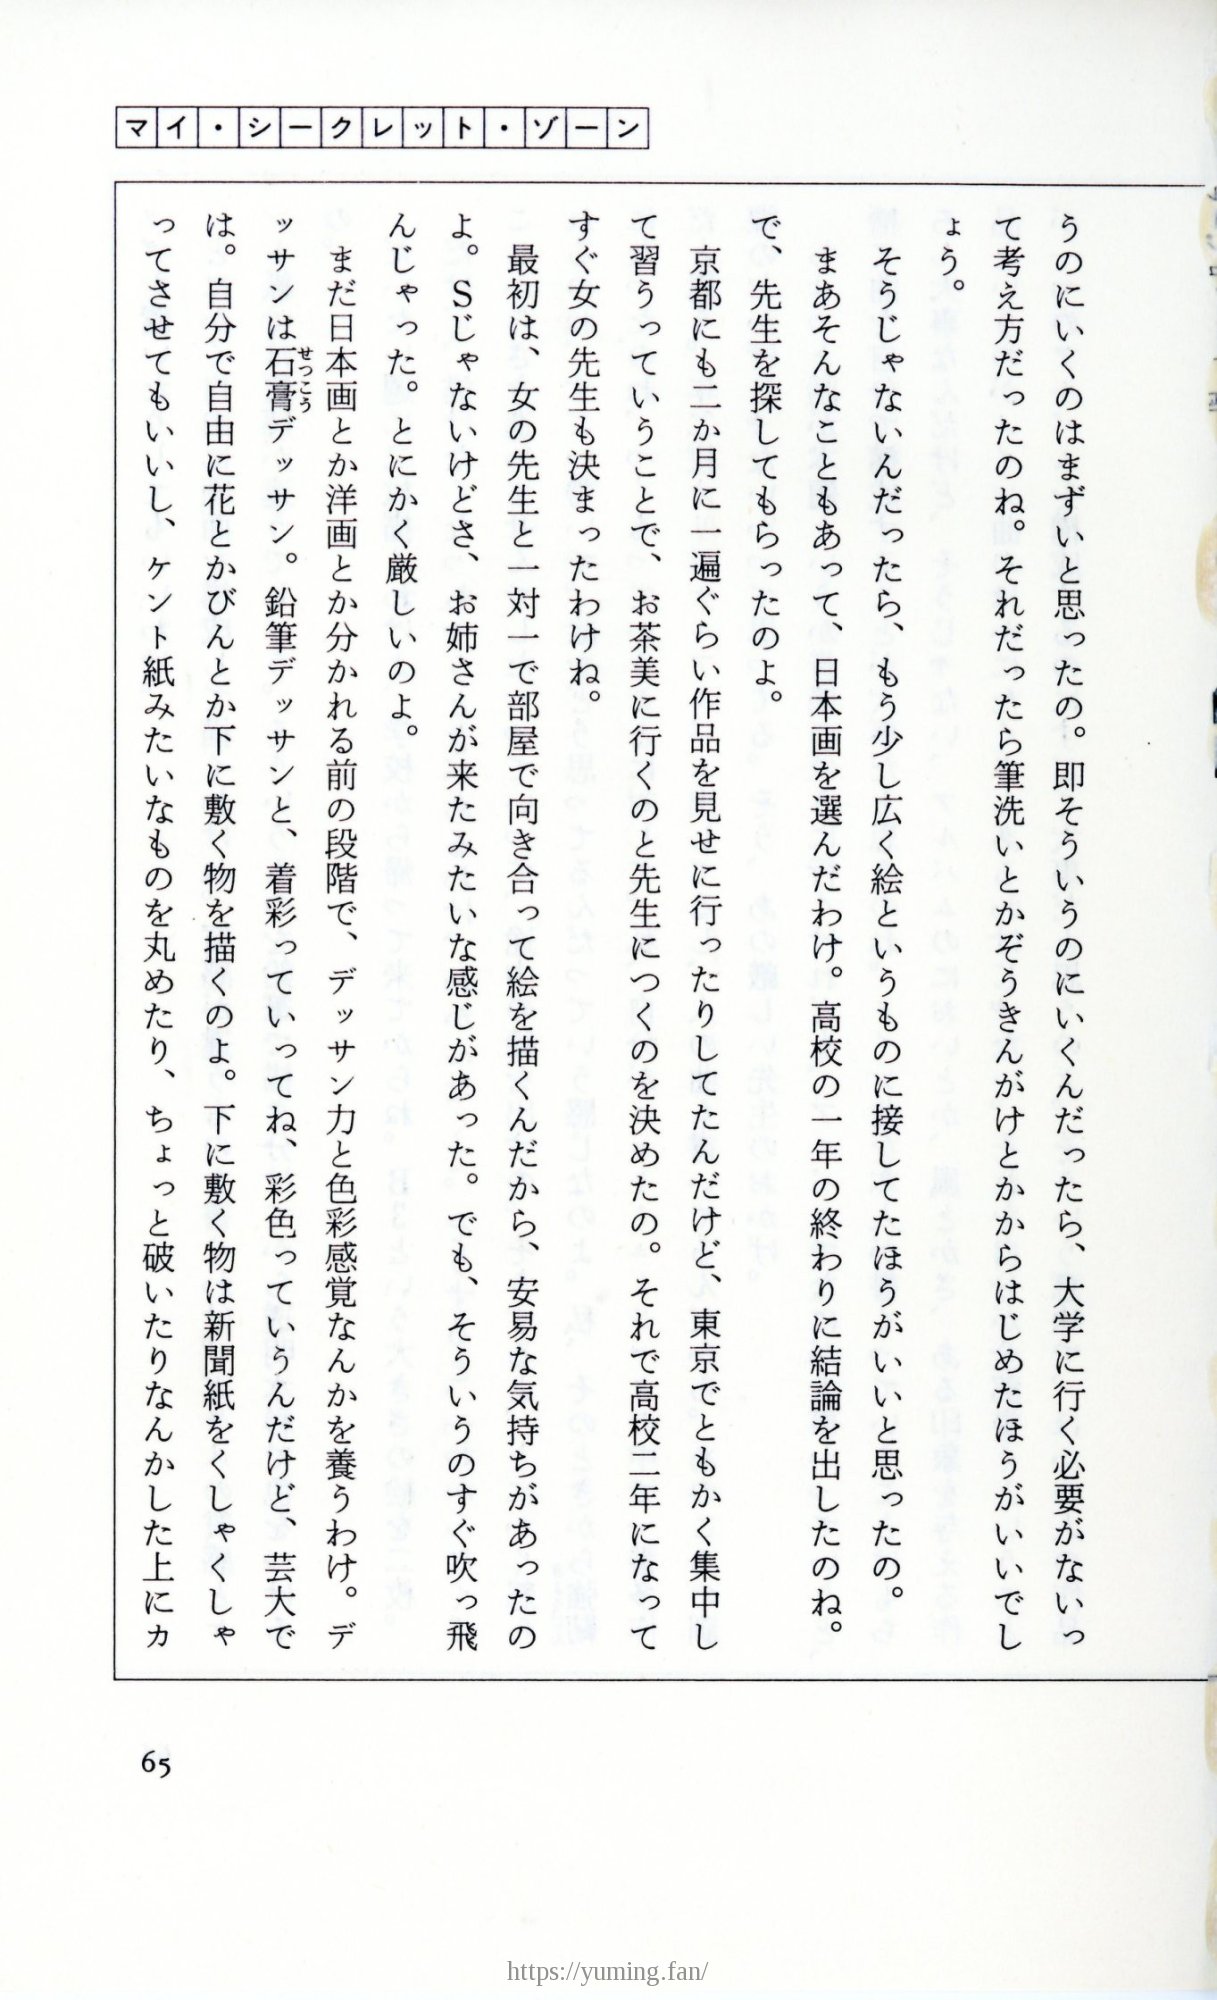 マイ・シークレット・ゾーン
うのにいくのはまずいと思ったの。即そういうのにいくんだったら、大学に行く必要がないっ
て考え方だったのね。それだったら筆洗いとかぞうきんがけとかからはじめたほうがいいでし
ょう。
そうじゃないんだったら、もう少し広く絵というものに接してたほうがいいと思ったの。
まあそんなこともあって、日本画を選んだわけ。高校の一年の終わりに結論を出したのね。
で、先生を探してもらったのよ。
京都にも二か月に一遍ぐらい作品を見せに行ったりしてたんだけど、東京でともかく集中し
て習うっていうことで、お茶美に行くのと先生につくのを決めたの。それで高校二年になって
すぐ女の先生も決まったわけね。
最初は、女の先生と一対一で部屋で向き合って絵を描くんだから、安易な気持ちがあったの
よ。Sじゃないけどさ、お姉さんが来たみたいな感じがあった。でも、そういうのすぐ吹っ飛
んじゃった。とにかく厳しいのよ。
まだ日本画とか洋画とか分かれる前の段階で、デッサン力と色彩感覚なんかを養うわけ。デ
ッサンは石膏デッサン。鉛筆デッサンと、着彩っていってね、彩色っていうんだけど、芸大で
せっこう
は。自分で自由に花とかびんとか下に敷く物を描くのよ。下に敷く物は新聞紙をくしゃくしゃ
ってさせてもいいし、ケント紙みたいなものを丸めたり、ちょっと破いたりなんかした上にカ
65
https://yuming.fan/